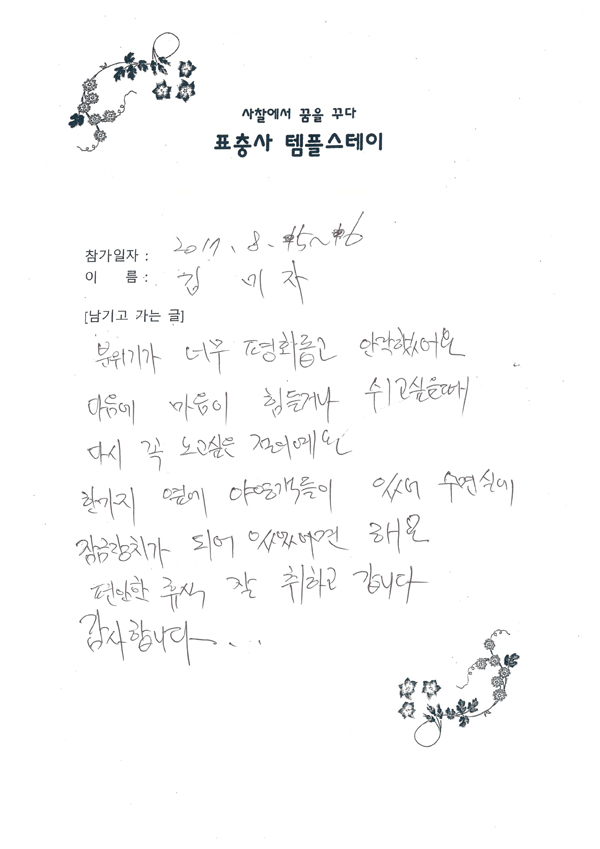 사찰에서 꿈을 꾸다
표충사 템플스테이
참가일자 : 2017. 8. 15~16
이 름 : 김 미 자
[남기고 가는 글]
분위기가 너무 평화롭고 안락했어요
다음에 마음이 힘들거나 쉬고싶을때
다시 꼭 오고싶은 절이예요
한가지 옆에 야영객들이 있어 수면실에
잠금장치가 되어 있었으면 해요
편안한 휴식 잘 취하고 갑니다
감사합니다~...